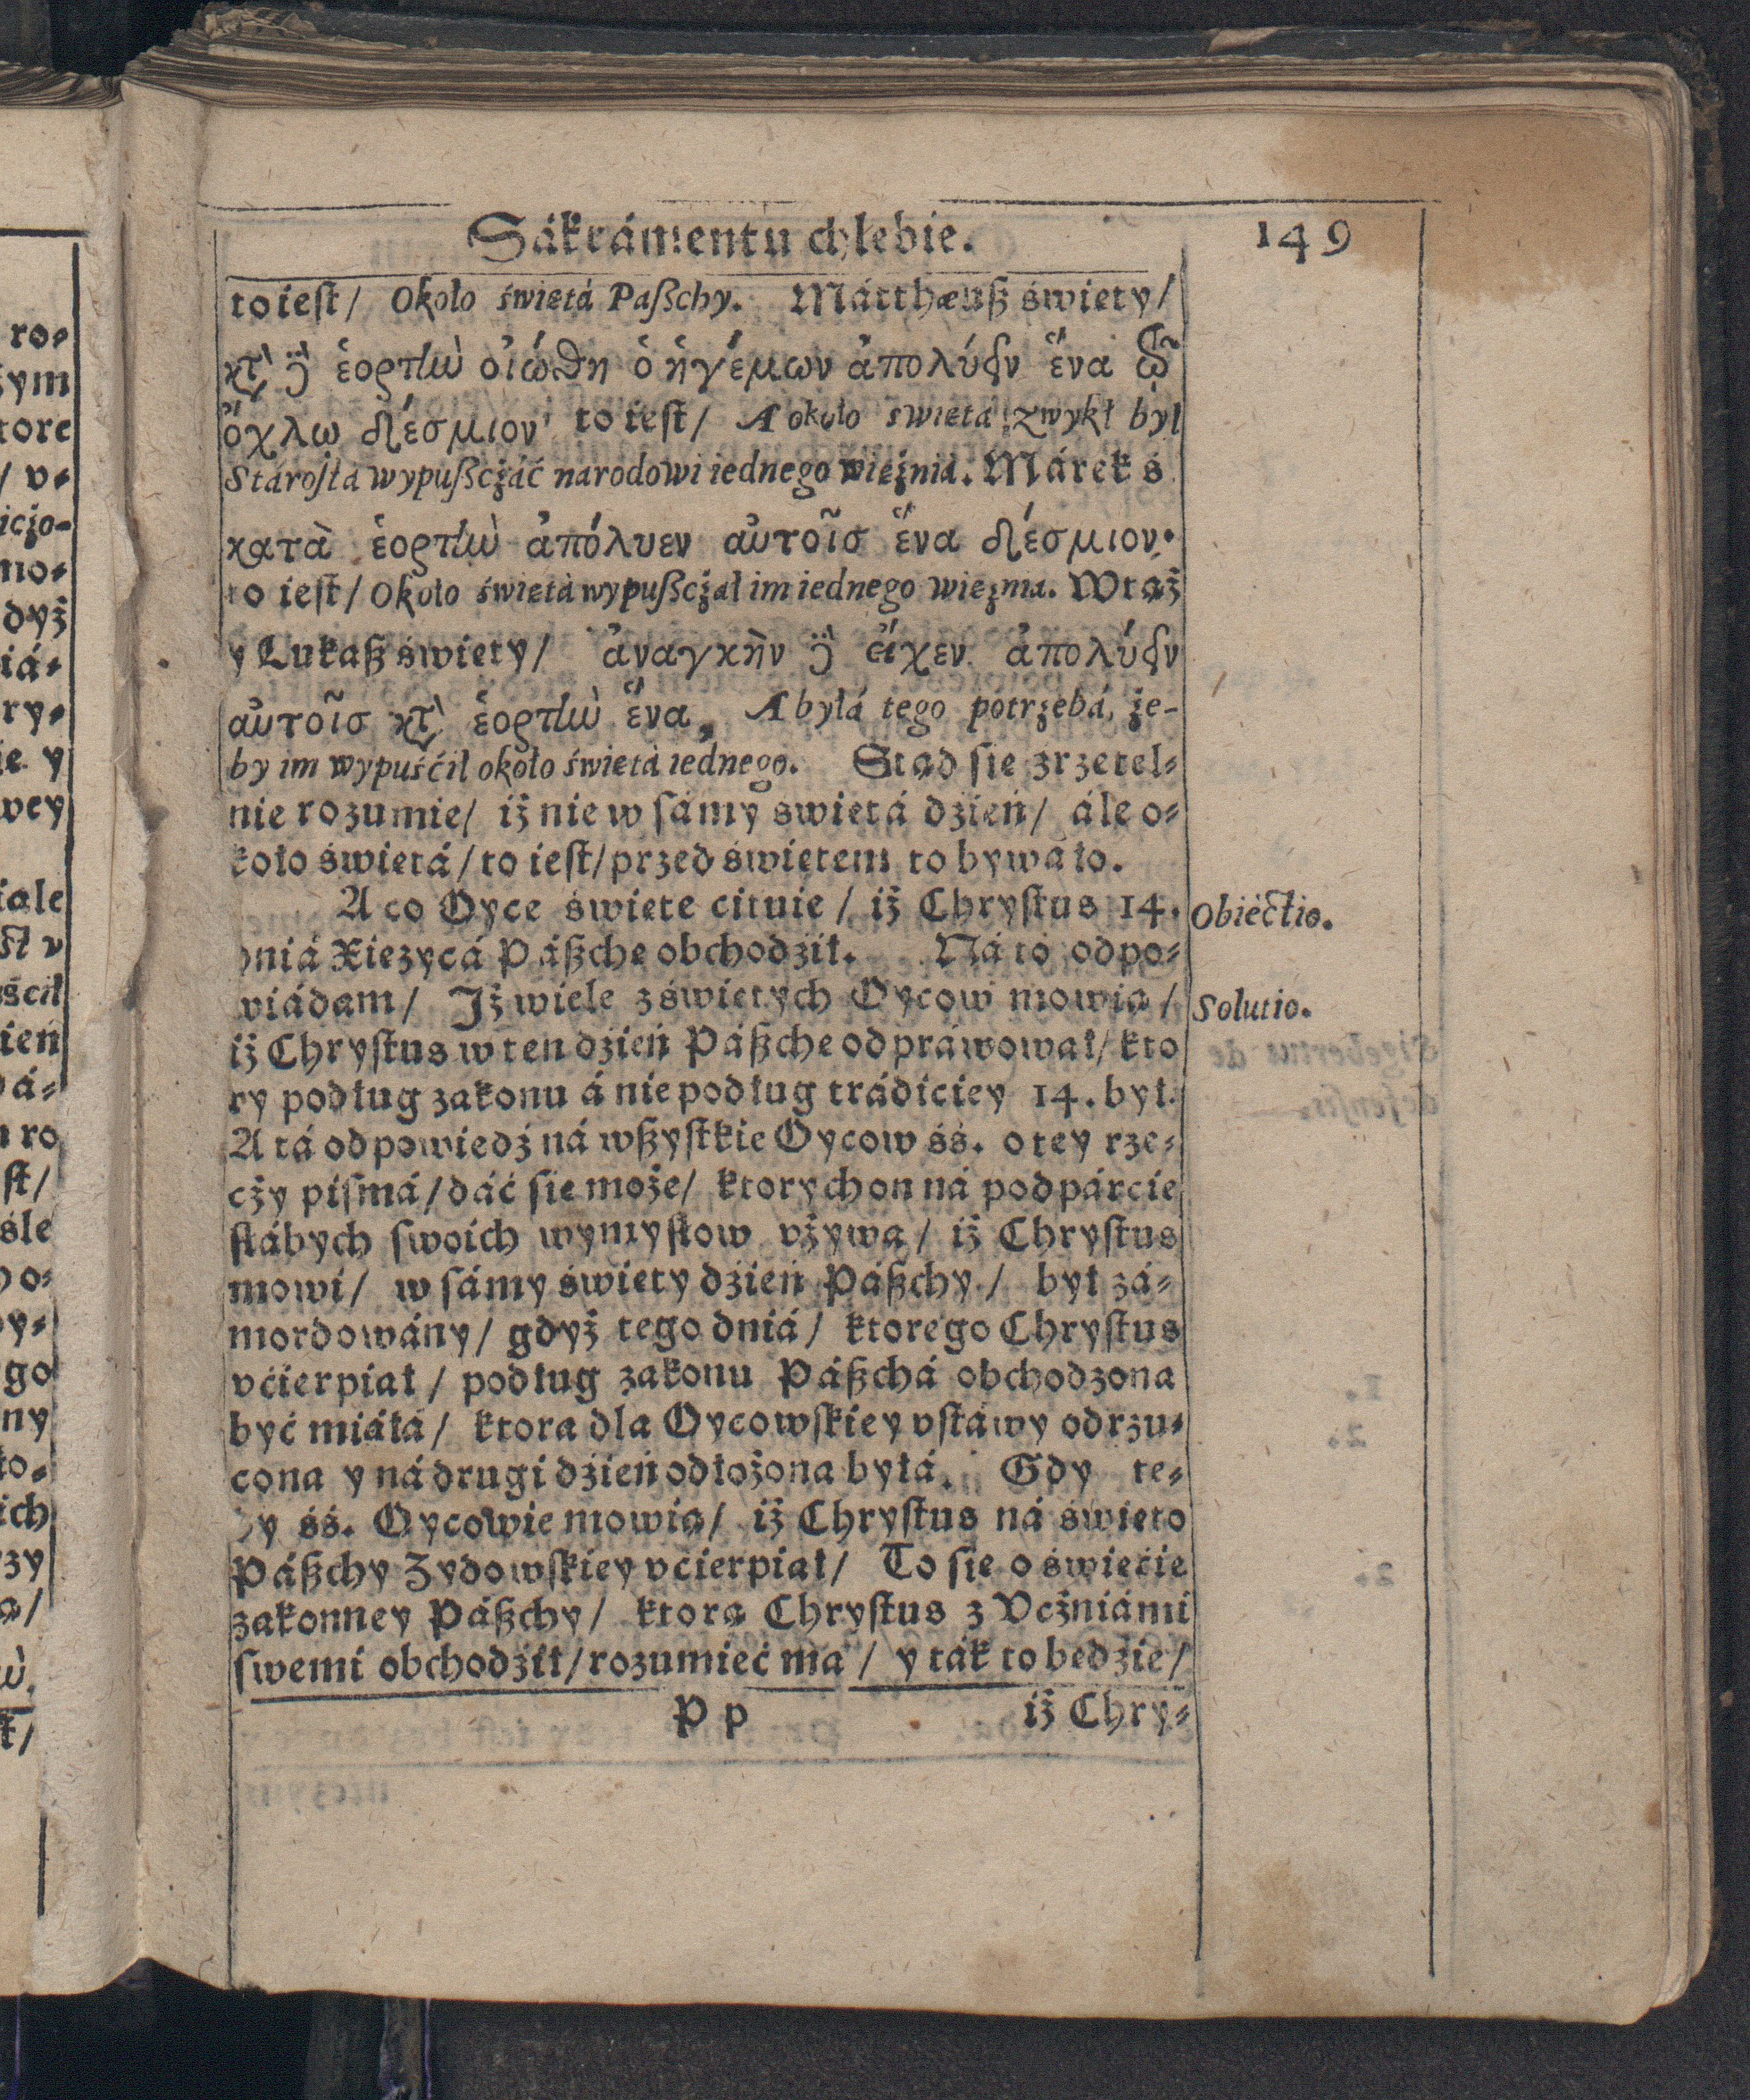 Sákrámentu chlebie. 149
to iest/ Około świetá Paßchy. Mátthæuß świety/
κτ̀ ἑορτὴν οἰώθη ὁ ἡγέμων ἀπολύειν ἕνα τῷ
ὄχλω δέσμιον to iest/ A około swietá zwykł był
Stárostá wypußcżáć narodowi iednego wieźniá. Márek ś
κατὰ ἑορτὴν ἀπόλυεν αὐτοῖσ ἕνα δέσμιον·
to iest/ Około świetá wypußcżał im iednego wieźnia. Wtąż
y Lukaß świety/ ἀναγκὴν δὲ εἶχεν ἀπολύειν
αὐτοῖσ κτ̀ ἑορτὴν ἕνα, A byłá tego potrzebá, że-
by im wypuśćił około świetá iednego. Stąd sie zrzetel-
nie rozumie/ iż nie w sámy swietá dżień/ ále o-
koło świetá/ to iest/ przed świętem to bywáło.
A co Oyce świete cituie/ iż Chrystus 14. Obiectio.
dniá Xiezycá Páßche obchodźił. Ná to odpo-
wiádam/ Iż wiele z świetych Oycow mowią/ Solutio.
iż Chrystus w ten dżień Páßche odpráwował/ kto
ry podług zakonu á nie podług trádiciey 14. był.
A tá odpowiedź ná wßystkie Oycow śś. o tey rze-
cży pismá/ dáć sie może/ ktorych on ná podpárcie
słábych swoich wymysłow vżywa/ iż Chrystus
mowi/ w sámy świety dżień Páßchy/ był zá-
mordowány/ gdyż tego dniá/ ktorego Chrystus
vćierpiał/ podług zakonu Páßchá obchodzona
być miáłá/ ktora dla Oycowskiey vstáwy odrzu-
cona y ná drugi dżień odłożona byłá. Gdy te-
dy śś. Oycowie mowią/ iż Chrystus ná świeto
Páßchy Zydowskiey vćierpiał/ To sie o świećie
zakonney Páßchy/ ktorą Chrystus z Vcżniámi
swemi obchodźił/ rozumieć ma/ y ták to bedżie/
P p iż Chry-